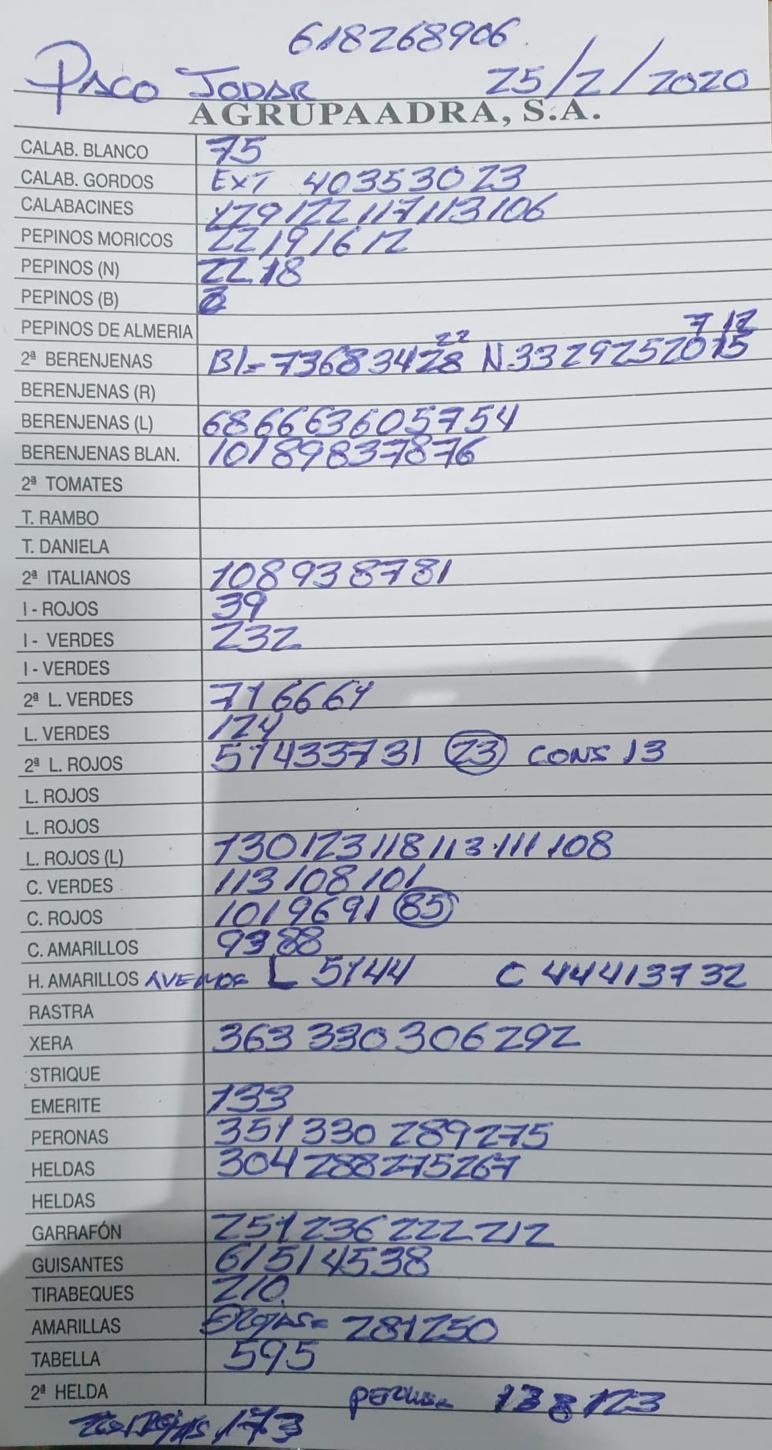 618268906
PACO JODAR 25/2/2020
AGRUPAADRA, S.A.
CALAB. BLANCO 75
CALAB. GORDOS EXT 40353023
CALABACINES 129122117113106
PEPINOS MORICOS 22191612
PEPINOS (N) 2218
PEPINOS (B)
PEPINOS DE ALMERIA 22 7 12
2ª BERENJENAS Bl= 73683428 N3329252015
BERENJENAS (R)
BERENJENAS (L) 686663605754
BERENJENAS BLAN. 10189837876
2ª TOMATES
T. RAMBO
T. DANIELA
2ª ITALIANOS 108938781
I - ROJOS 39
I - VERDES 232
I - VERDES
2ª L. VERDES 716664
L. VERDES 124
2ª L. ROJOS 5143373 1 23 CONS 13
L. ROJOS
L. ROJOS
L. ROJOS (L) 130123118113 111 108
C. VERDES 113108101
C. ROJOS 1019691 85
C. AMARILLOS 9388
H. AMARILLOS L 5144 C 444413732
RASTRA
XERA 363 330 306 292
STRIQUE
EMERITE 133
PERONAS 351 330 289275
HELDAS 304 288275267
HELDAS
GARRAFÓN 251236 222 212
GUISANTES 61514538
TIRABEQUES 210
AMARILLAS 281250
TABELLA 595
2ª HELDA 138 123
173